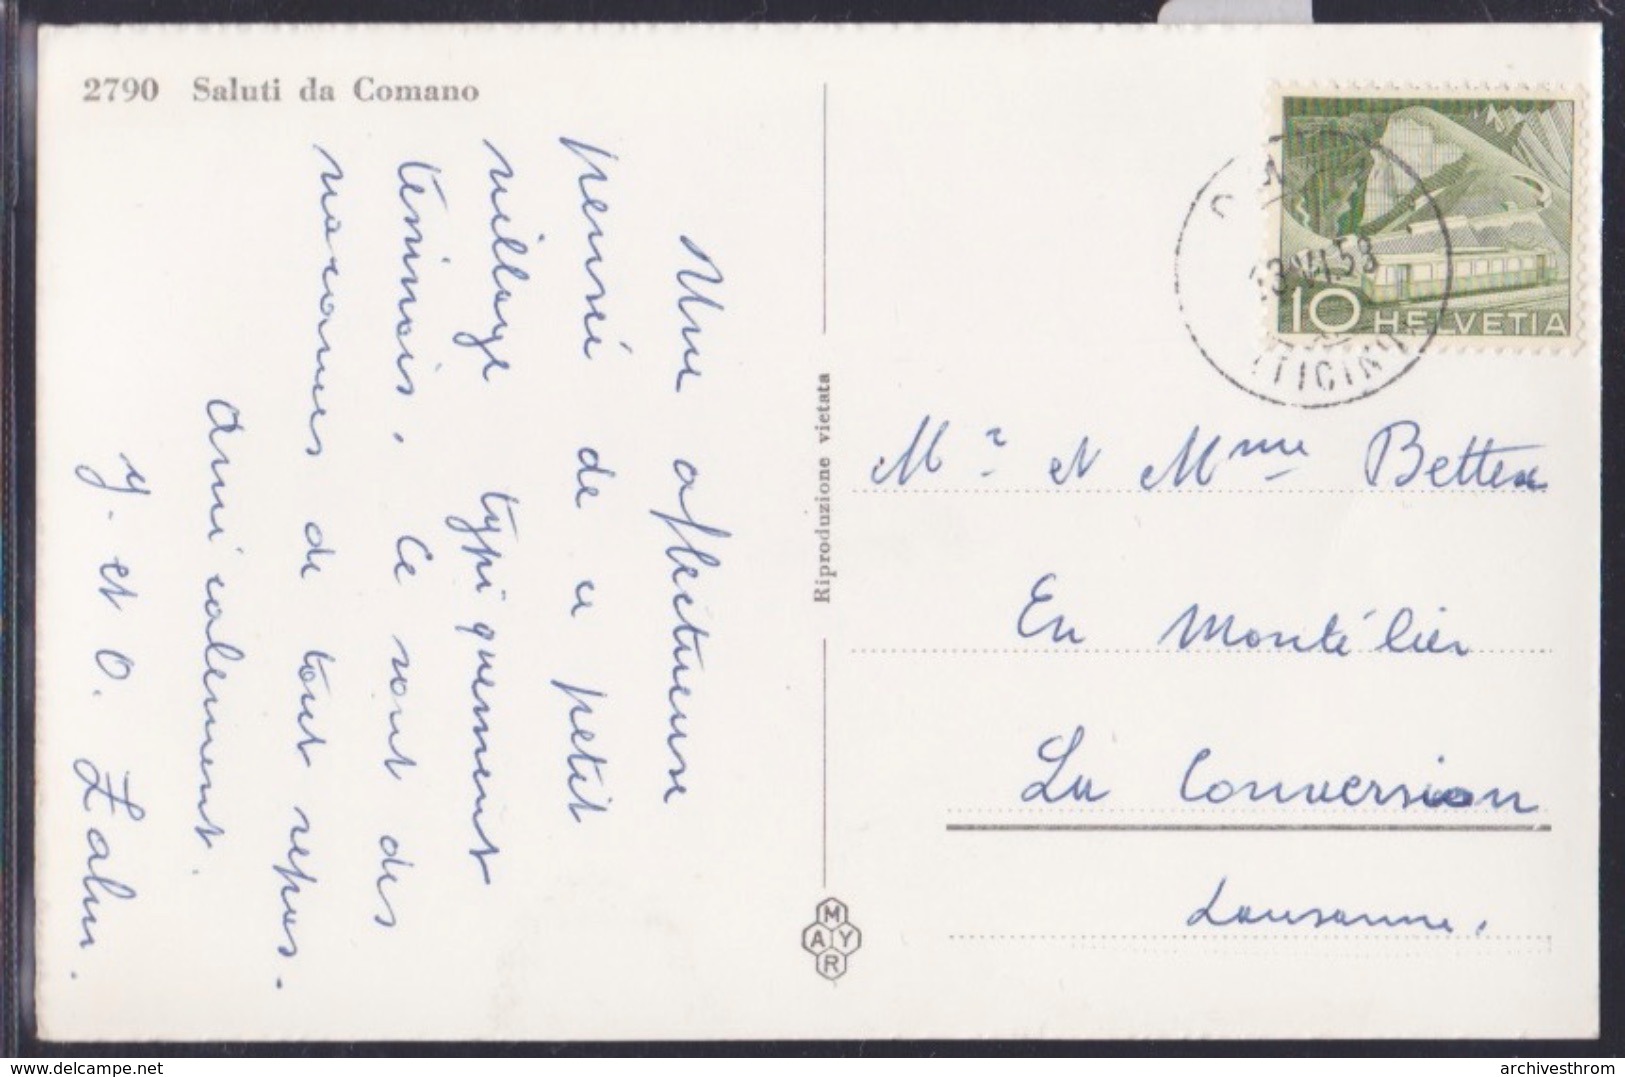 2790 Saluti da Comano
Une affectueuse
pensée de ce petit
village typiquement
tessinois. Ce sont des
vacances de tout repos.
Amicalement.
Y. et O. Zahn.
Riproduzione vietata
MAYR
13.VI.53
(TICINO)
10 HELVETIA
Mr et Mme Bettex
En Montélier
La Conversion
Lausanne.
delcampe.net
archivesthrom